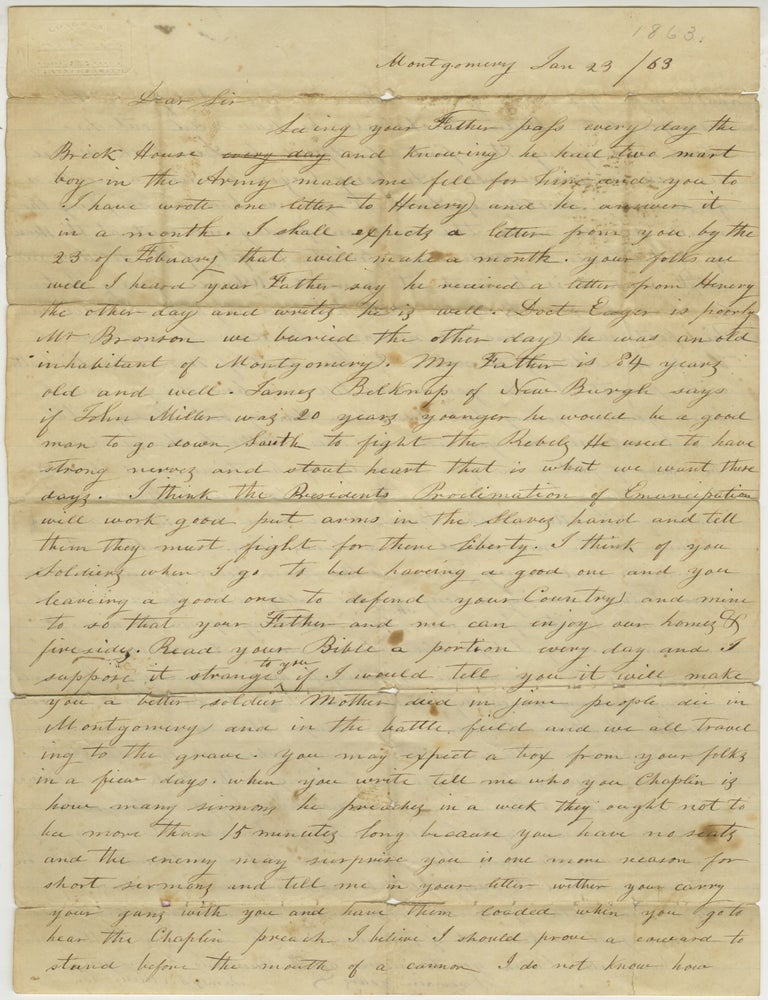 1863.
Montgomery Jan 23 / 63
Dear Sir
Seeing your Father pass every day the
Brick House every day and knowing he had two mart
boy in the Army made me fell for him and you to
I have wrote one letter to Henery and he answer it
in a month. I shall expects a letter from you by the
23 of Febuary that will make a month. your folks are
well I heard your Father say he received a letter from Henery
the other day and writes he is well. Doct Eager is poorly
Mr Bronson we buried the other day he was an old
inhabitant of Montgomery. My Father is 84 years
old and well. James Belknap of New Burgh says
if John Miller was 20 years younger he would be a good
man to go down South to fight the Rebels He used to have
strong nerves and stout heart that is what we want these
days. I think the Presidents Proclimation of Emancipation
will work good put arms in the Slaves hand and tell
them they must fight for there liberty. I think of you
Soldiers when I go to bed haveing a good one and you
leaveing a good one to defend your Country and mine
to so that your Father and me can enjoy our homes &
firesides. Read your Bible a portion every day and I
suppose it strange to you if I would tell you it will make
you a better soldier Mother died in june people die in
Montgomery and in the battle field and we all travel
ing to the grave. you may expect a box from your folks
in a fiew days. when you write tell me who you Chaplin is
how many sirmons he preaches in a week they ought not to
be more than 15 minutes long because you have no seats
and the enemy may surprise you is one more reason for
short sermons and tell me in your letter wither you carry
your guns with you and have them loaded when you go to
hear the Chaplin preach I believe I should prove a coward to
stand before the mouth of a cannon I do not know how